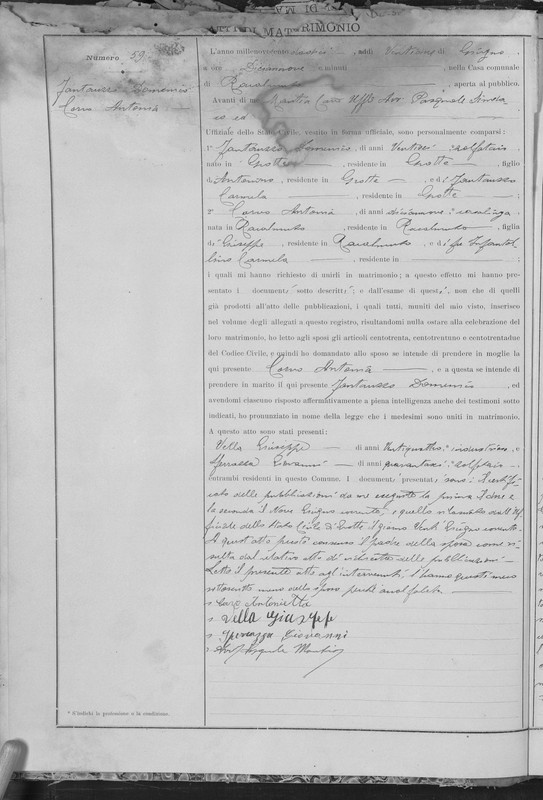 ATTI DI MATRIMONIO
Numero 59
Fantauzzo Domenico
Corvo Antonia
L'anno millenovecento, addì Ventidue di Giugno
a ore Diciannove e minuti, nella Casa comunale
di Racalmuto, aperta al pubblico.
Avanti di me Pasquale
ed
Uffiziale dello Stato Civile, vestito in forma ufficiale, sono personalmente comparsi:
1° Fantauzzo Domenico, di anni, solfataio
nato in Grotte, residente in Grotte, figlio
di Antonino, residente in Grotte e di Fantauzzo
Carmela, residente in Grotte;
2° Corvo Antonia, di anni diciannove, casalinga
nata in Racalmuto, residente in Racalmuto, figlia
di Giuseppe, residente in Racalmuto, e di fu Infantol
lino Carmela, residente in;
i quali mi hanno richiesto di unirli in matrimonio; a questo effetto mi hanno pre-
sentato i documenti sotto descritti; e dall'esame di questi, non che di quelli
già prodotti all'atto delle pubblicazioni, i quali tutti, muniti del mio visto, inserisco
nel volume degli allegati a questo registro, risultandomi nulla ostare alla celebrazione del
loro matrimonio, ho letto agli sposi gli articoli centotrenta, centotrentuno e centotrentadue
del Codice Civile, e quindi ho domandato allo sposo se intende di prendere in moglie la
qui presente Corvo Antonia, e a questa se intende di
prendere in marito il qui presente Fantauzzo Domenico, ed
avendomi ciascuno risposto affermativamente a piena intelligenza anche dei testimoni sotto
indicati, ho pronunziato in nome della legge che i medesimi sono uniti in matrimonio.
A questo atto sono stati presenti:
Vella Giuseppe di anni Ventiquattro, industrioso, e
Sferrazza Giovanni di anni quarantasei, solfataio
entrambi residenti in questo Comune. I documenti presentati sono: il certifi
cato delle pubblicazioni da me eseguite la prima il due e
la seconda il Nove Giugno corrente, e quello rilasciato dall'Uf
ficiale dello Stato Civile di Grotte, il giorno Venti Giugno corrente.
A quest'atto prestò consenso il padre della sposa come ri
sulta dal relativo atto di richiesta delle pubblicazioni.
Letto il presente atto agli intervenuti, l'hanno questi meco
sottoscritto meno dello sposo perché analfabeta.
Corvo Antonietta
Vella Giuseppe
Sferrazza Giovanni
Pasquale
* S'indichi la professione o la condizione.